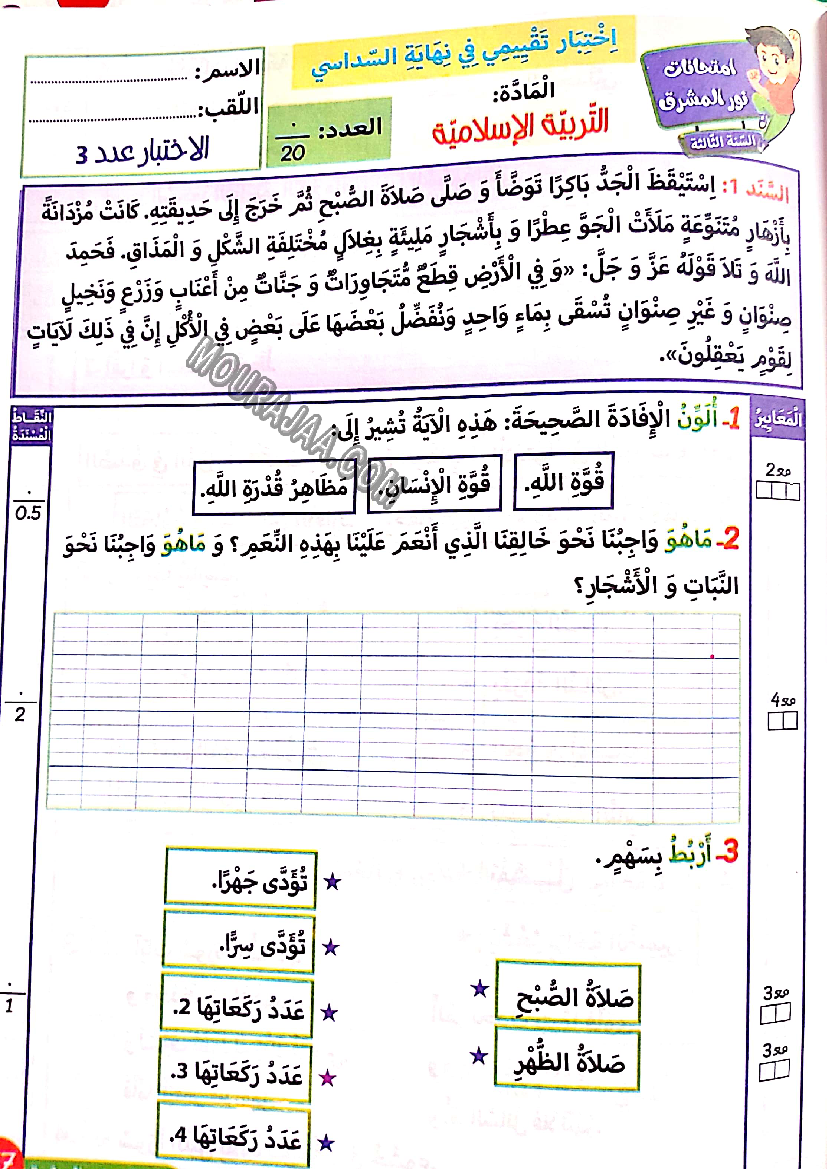 امتحانات
نور المشرق
السّنة الثّالثة
اِخْتِبَار تَقْيِيمِي فِي نِهَايَةِ السّداسي
الْمَادَّة:
التّربيّة الإسلاميّة
العدد:
20
الاسم:
اللّقب:
الاختبار عدد 3
السَّنَد 1: اِسْتَيْقَظَ الْجَدُّ بَاكِرًا تَوَضَّأَ وَ صَلَّى صَلَاَةَ الصُّبْحِ ثُمَّ خَرَجَ إِلَى حَدِيقَتِهِ. كَانَتْ مُزْدَانَةً
بِأَزْهَارٍ مُتَنَوِّعَةٍ مَلَأَتْ الْجَوَّ عِطْرًا وَ بِأَشْجَارٍ مَلِيئَةٍ بِغِلَالٍ مُخْتَلِفَةِ الشَّكْلِ وَ الْمَذَاقِ. فَحَمِدَ
اللَّهَ وَ تَلَا قَوْلَهُ عَزَّ وَ جَلَّ: «وَ فِي الْأَرْضِ قِطَعٌ مُتَجَاوِرَاتٌ وَ جَنَّاتٌ مِنْ أَعْنَابٍ وَزَرْعٍ وَنَخِيلٍ
صِنْوَانٍ وَ غَيْرِ صِنْوَانٍ تُسْقَى بِمَاءٍ وَاحِدٍ وَنُفَضِّلُ بَعْضَهَا عَلَى بَعْضٍ فِي الْأُكْلِ إِنَّ فِي ذَلِكَ لَآيَاتٍ
لِقَوْمٍ يَعْقِلُونَ».
MOURAJAA.COM
الْمَعَايِيرُ
النّقَاط
الْمُسْنَدَة
1- أُلَوِّنُ الْإِفَادَةَ الصَّحِيحَةَ: هَذِهِ الْآيَةُ تُشِيرُ إِلَى:
مع2
قُوَّةِ اللَّهِ.
قُوَّةِ الْإِنْسَانِ.
مَظَاهِرُ قُدْرَةِ اللَّهِ.
0.5
2- مَاهُوَ وَاجِبُنَا نَحْوَ خَالِقِنَا الَّذِي أَنْعَمَ عَلَيْنَا بِهَذِهِ النِّعَمِ؟ وَ مَاهُوَ وَاجِبُنَا نَحْوَ
النَّبَاتِ وَ الْأَشْجَارِ؟
مع4
2
3- أَرْبُطُ بِسَهْمٍ.
تُؤَدَّى جَهْرًا.
تُؤَدَّى سِرًّا.
صَلَاَةُ الصُّبْحِ
عَدَدُ رَكَعَاتِهَا 2.
مع3
1
صَلَاَةُ الظُّهْرِ
عَدَدُ رَكَعَاتِهَا 3.
مع3
عَدَدُ رَكَعَاتِهَا 4.
7